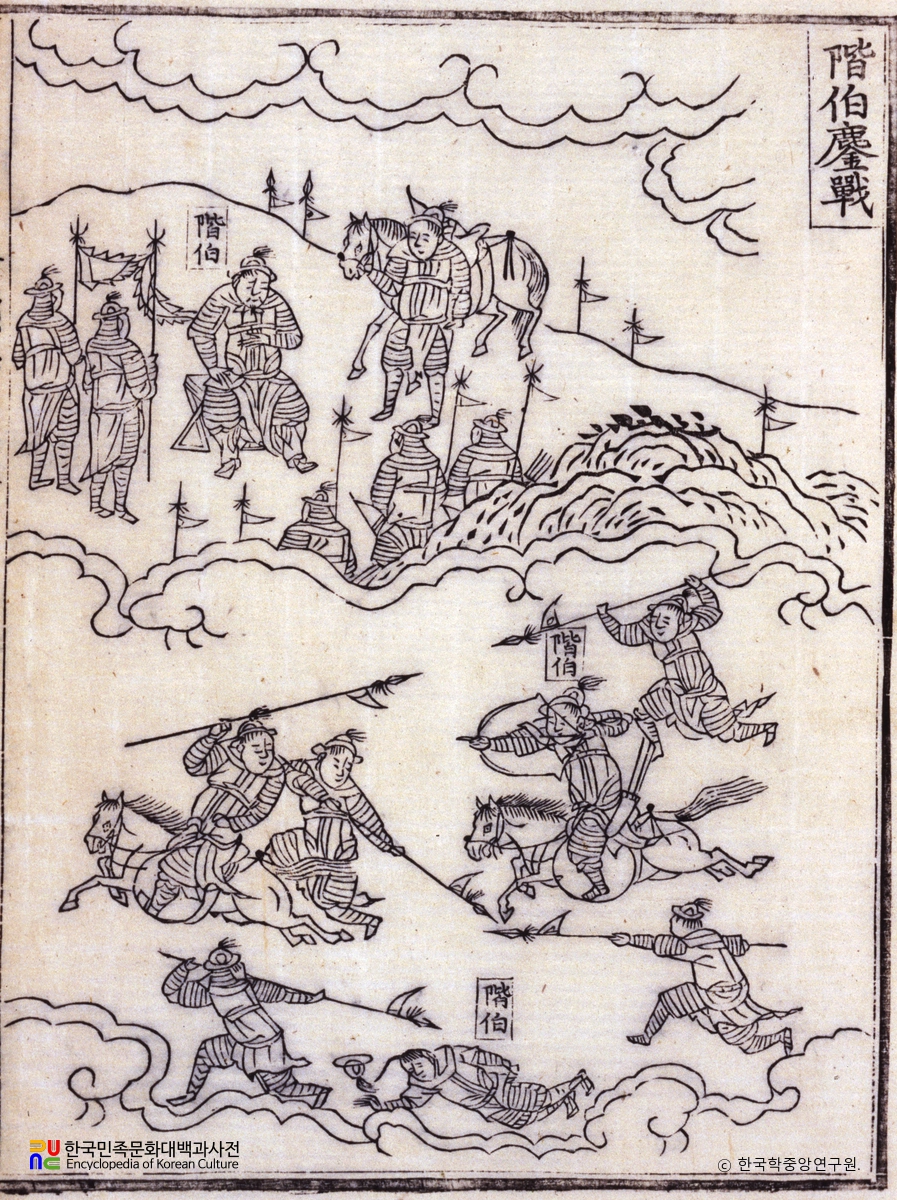 階伯鏖戰
階伯
階伯
階伯
한국민족문화대백과사전
Encyclopedia of Korean Culture
ⓒ 한국학중앙연구원.